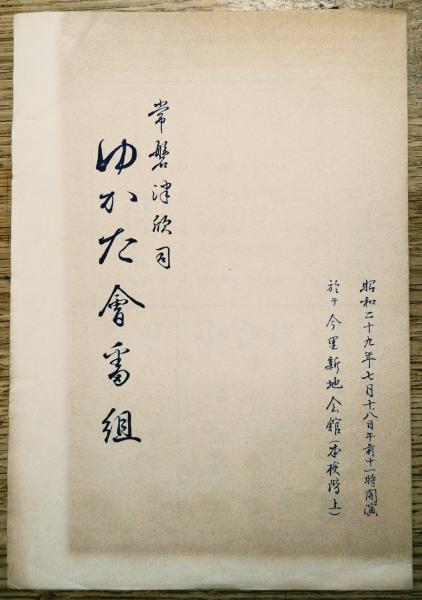 昭和二十九年七月十八日午前十一時開演
於テ今里新地会館(本検階上)
常磐津欣司
ゆかた會番組